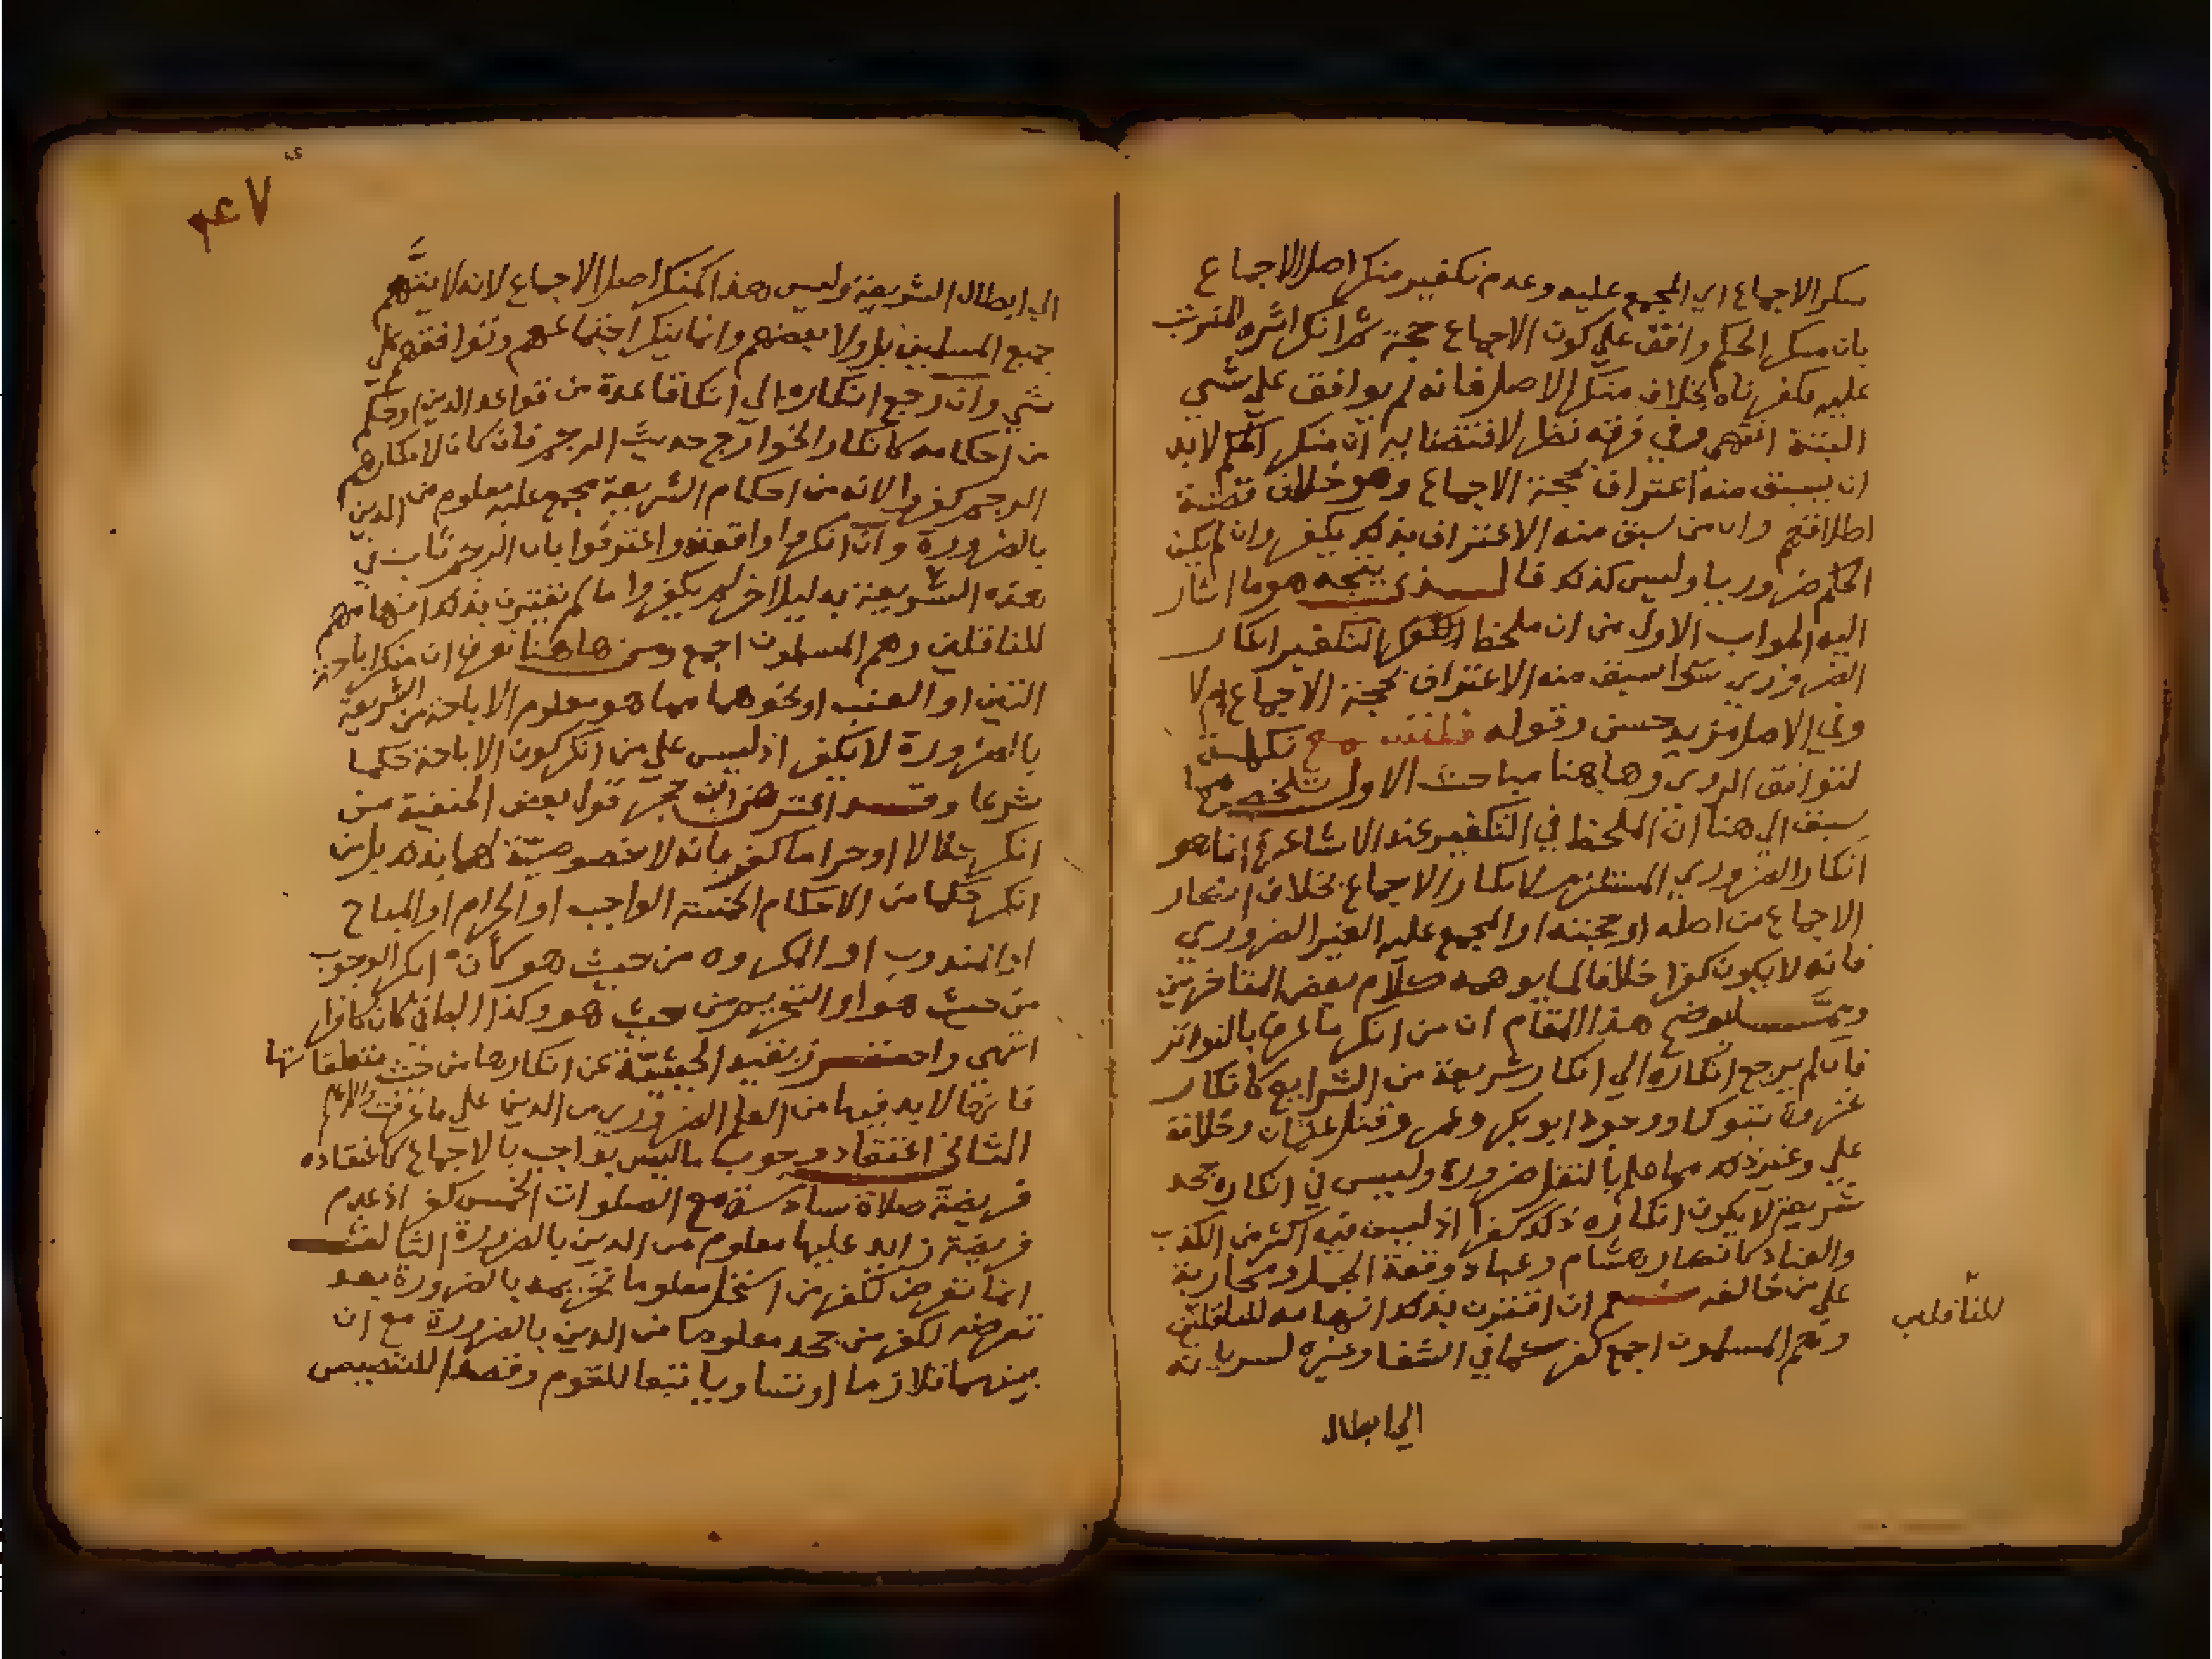 منكر الاجماع اي المجمع عليه وعدم تكفير منكر اصل الاجماع
بان منكر الحكم وافق علي كون الاجماع حجة ثم انكر اثره المترتب
عليه فكفرناه بخلاف منكر الاصل فانه لم يوافق علي شي
البتة انتهي وفي فرقه نظر لاقتضايه ان منكر الحكم لابد
ان يسبق منه اعتراف بحجية الاجماع وهو خلاف قضية
اطلاقهم وان من سبق منه الاعتراف بذلك يكفر وان لم يكن
الحكم ضروريا وليس كذلك فالذي يتجه هو ما اشار
اليه الجواب الاول من ان ملحظ التكفير انكار
الضروري سوا سبق منه الاعتراف بحجية الاجماع ام لا
وفي الاصل مزيد حسن وقوله
لتوافق الروي وهاهنا مباحث الاول تلخص مما
سبق الي هنا ان الملحظ في التكفير عند الاشاعرة انما هو
انكار الضروري المستلزم لانكار الاجماع بخلاف انكار
الاجماع من اصله او حجيته او المجمع عليه الغير الضروري
فانه لا يكون كفرا خلافا لما يوهمه كلام بعض المتاخرين
ومما يوضح هذا المقام ان من انكر ما عرف بالتواتر
فان لم يرجع انكاره الي انكار شريعة من الشرايع كانكار
غزوة تبوك او وجود ابو بكر وعمر وقتل عثمان وخلافة
علي وغير ذلك مما علم بالنقل ضرورة وليس في انكاره جحد
شريعة لا يكون انكاره ذلك كفرا اذ ليس فيه اكثر من الكذب
والعناد كانكار هشام وعباد وقعة الجمل ومحاربة
علي من خالفه نعم ان اقترن بذلك اتهامه للناقلين
وهم المسلمون اجمع كفر كما في الشفا وغيره لسريانه
للناقلين
الي ابطال
٤٧
الي ابطال الشريعة وليس هذا المنكر اصل الاجماع لانه لا يتهم
جميع المسلمين بل ولا بعضهم وانما ينكر اجتماعهم وتوافقهم علي
شي وان رجع انكاره الي انكار قاعدة من قواعد الدين او حكم
من احكامه كانكار الخوارج حديث الرجم فان كان لانكارهم
الرجم كفروا لانه من احكام الشريعة مجمع عليه معلوم من الدين
بالضرورة وان انكروا واقعته واعترفوا بان الرجم ثابت في
هذه الشريعة بدليل اخر لم يكفروا ما لم يقترن بذلك اتهامهم
للناقلين وهم المسلمون اجمع ومن هاهنا تعرف ان منكر اباحة
التين او العنب او نحوهما مما هو معلوم الاباحة من الشريعة
بالضرورة لا يكفر اذ ليس علي من انكر كون الاباحة حكما
شرعا وقد اعترض ابن حجر قول بعض الحنفية من
انكر حلالا او حراما كفر بانه لا خصوصية لهما بذلك بل من
انكر حكما من الاحكام الخمسة الواجب او الحرام او المباح
او المندوب او المكروه من حيث هو كأن انكر الوجوب
من حيث هو او التحريم من حيث هو وكذا الباقي كان كافرا
انتهي واحترز بقيد الحيثية عن انكارها من حيث متعلقاتها
فانها لابد فيها من العلم الضروري من الدين علي ما عرفت والله اعلم
الثاني اعتقاد وجوب ما ليس بواجب بالاجماع كاعتقاده
فريضة صلاة سادسة مع الصلوات الخمس كفر اذ عدم
فريضة زايد عليها معلوم من الدين بالضرورة الثالث
انما تعرض لكفر من استحل معلوما تحريمه بالضرورة بعد
تعرضه لكفر من جحد معلوما من الدين بالضرورة مع ان
بينهما تلازما او تساويا تبعا للقوم وقصدا للتنصيص